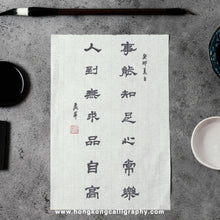 癸卯夏日
事能知足心常樂
人到無求品自高
www.hongkongcalligraphy.com